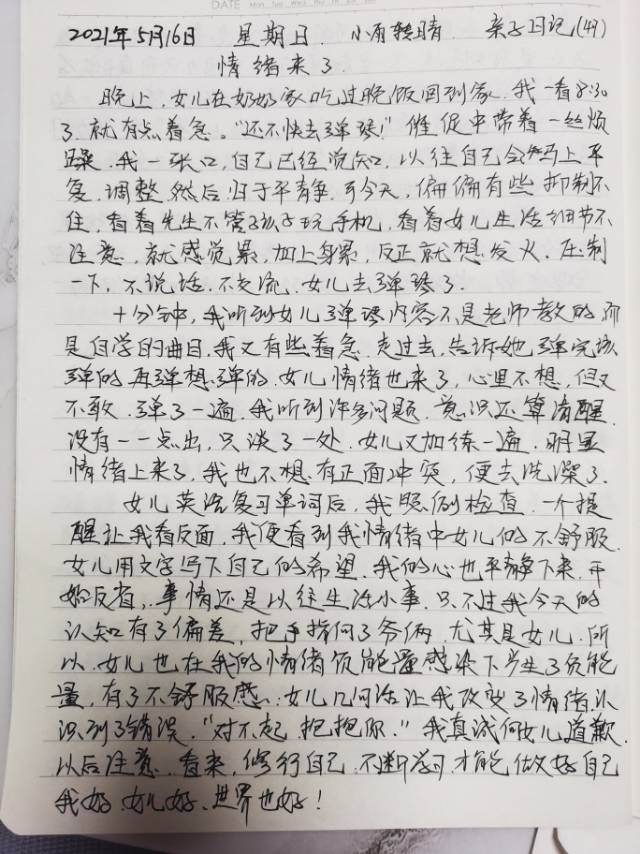 DATE Mon Tue Wed Thu Fri Sat Sun
2021年5月16日 星期日. 小雨转晴 亲子日记(49)
情绪来了.
晚上,女儿在奶奶家吃过晚饭回到家.我一看8:30
了.就有点着急。“还不快去弹琴!”催促中带着一丝烦
躁.我一张口,自己已经觉知.以往自己会马上平
复.调整.然后归于平静.可今天,偏偏有些抑制不
住,看着先生不管孩子玩手机,看着女儿生活细节不
注意,就感觉累,加上身累,反正就想发火.压制
一下,不说话.不交流.女儿去弹琴了.
十分钟,我听到女儿弹琴内容不是老师教的而
是自学的曲目.我又有些着急.走过去,告诉她弹完该
弹的再弹想弹的.女儿情绪也来了,心里不想,但又
不敢.弹了一遍.我听到许多问题.意识还算清醒.
没有一一点出,只谈了一处.女儿又加练一遍.明显
情绪上来了,我也不想有正面冲突,便去洗澡了.
女儿英语复习单词后,我照例检查.一个提
醒让我看反面,我便看到我情绪中女儿的不舒服.
女儿用文字写下自己的希望.我的心也平静下来,开
始反省,事情还是以往生活小事.只不过我今天的
认知有了偏差,把手指向了爷俩.尤其是女儿.所
以.女儿也在我的情绪负能量感染下产生了负能
量,有了不舒服感.女儿几句话让我改变了情绪,认
识到了错误.“对不起 抱抱你.”我真诚向女儿道歉.
以后注意.看来,修行自己.不断学习.才能做好自己
我好.女儿好.世界也好!